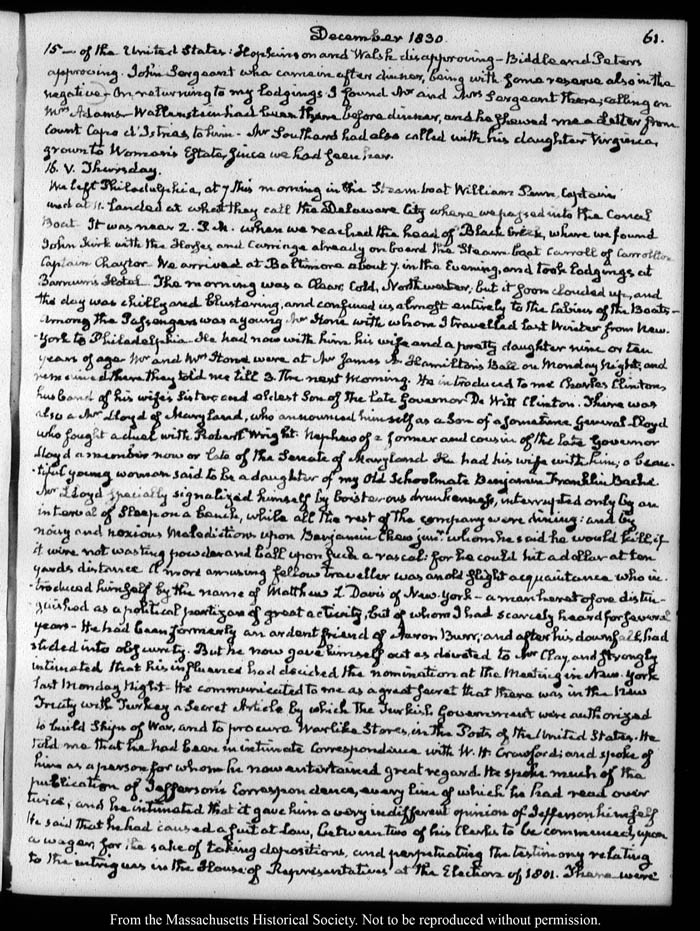 December 1830.
61.
15— of the United States: Hopkinson and Walsh disapproving— Biddle and Peters
approving. John Sergeant who came in after dinner, being with some reserve also in the
negative— On returning to my lodgings I found Mr and Mrs Sergeant there, calling on
Mrs Adams— Wallenstein had been there before dinner, and he shewed me a letter from
Count Capo d'Istrias to him— Mr Southard had also called with his daughter Virginia,
grown to Woman's Estate, since we had seen her.
16. V. Thursday.
We left Philadelphia, at 7 this morning in the Steam-boat William Penn, Captain
and at 11. landed at what they call the Delaware City where we passed into the Canal
Boat. It was near 2. P.M. when we reached the head of Black Creek, where we found
John Kirk with the Horses and Carriage already on board the Steam boat Carroll of Carrollton
Captain Chaytor. We arrived at Baltimore about 7. in the Evening, and took lodgings at
Barnum's Hotel. The morning was a Clear, Cold, Northwester, but it soon clouded up, and
the day was chilly and blustering, and confined us almost entirely to the Cabins of the Boats—
Among the Passengers was a young Mr Stone with whom I travelled last Winter from New-
York to Philadelphia. He had now with him his wife and a pretty daughter nine or ten
years of age. Mr and Mrs Stone were at Mr James A. Hamilton's Ball on Monday Night, and
remained there they told me till 3. the next Morning. He introduced to me Charles Clinton,
husband of his wife's Sister, and eldest Son of the late Governor De Witt Clinton. There was
also a Mr Lloyd of Maryland, who announced himself as a Son of a sometime General Lloyd
who fought a duel with Robert Wright. Nephew of a former and cousin of the late Governor
Lloyd a member now or late of the Senate of Maryland. He had his wife with him; a beau-
tiful young woman said to be a daughter of my Old Schoolmate Benjamin Franklin Bache
Mr Lloyd specially signalized himself by boisterous drunkenness, interrupted only by an
interval of sleep on a bench, while all the rest of the company were dining: and by
noisy and noxious Maledictions upon Benjamin Chew junr. whom he said he would kill, if
it were not wasting powder and ball upon such a rascal: for he could hit a dollar at ten
yards distance. A more amusing fellow traveller was an old slight acquaintance who in-
troduced himself by the name of Matthew L Davis of New-York— a man heretofore distin-
guished as a political partizan of great activity, but of whom I had scarcely heard for several
years— He had been formerly an ardent friend of Aaron Burr; and after his downfall, had
slided into obscurity. But he now gave himself out as devoted to Mr Clay, and strongly
intimated that his influence had decided the nomination at the Meeting in New-York
last Monday Night— He communicated to me as a great secret that there was in the New
Treaty with Turkey a Secret Article by which the Turkish Government were authorized
to build Ships of War, and to procure Warlike Stores, in the Ports of the United States. He
told me that he had been in intimate Correspondence with W. H. Crawford; and spoke of
him as a person for whom he now entertained great regard. He spoke much of the
publication of Jefferson's Correspondence, every line of which he had read over
twice; and he intimated that it gave him a very indifferent opinion of Jefferson himself
He said that he had caused a suit at Law, between two of his Clerks to be commenced, upon
a wager, for the sake of taking depositions, and perpetuating the testimony relating
to the intrigues in the House of Representatives at the Election of 1801. There were
From the Massachusetts Historical Society. Not to be reproduced without permission.